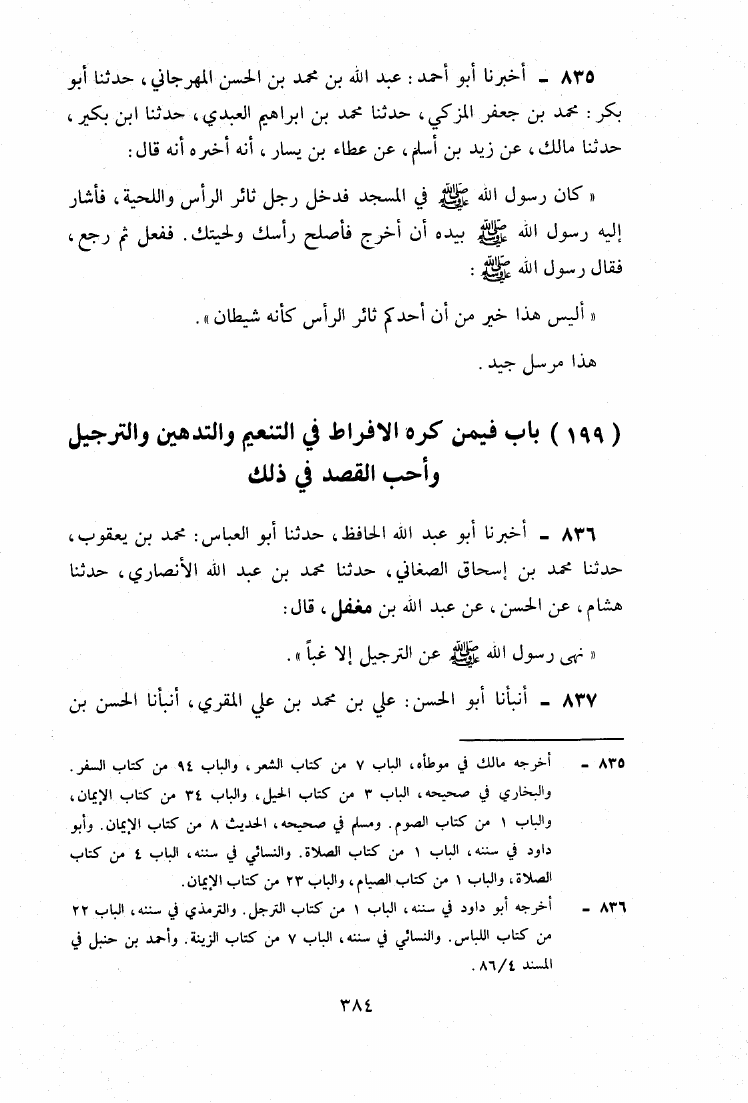 ٨٣٥ ـ أخبرنا أبو أحمد : عبد الله بن محمد بن الحسن المهرجاني ، حدثنا أبو
بكر : محمد بن جعفر المزكي ، حدثنا محمد بن ابراهيم العبدي ، حدثنا ابن بكير ،
حدثنا مالك ، عن زيد بن أسلم ، عن عطاء بن يسار ، أنه أخبره أنه قال :
« كان رسول الله ﷺ في المسجد فدخل رجل ثائر الرأس واللحية ، فأشار
إليه رسول الله ﷺ بيده أن أخرج فأصلح رأسك ولحيتك . ففعل ثم رجع ،
فقال رسول الله ﷺ :
« أليس هذا خير من أن أحدكم ثائر الرأس كأنه شيطان » .
هذا مرسل جيد .
( ١٩٩ ) باب فيمن كره الافراط في التنعيم والتدهين والترجيل
وأحب القصد في ذلك
٨٣٦ ـ أخبرنا أبو عبد الله الحافظ ، حدثنا أبو العباس : محمد بن يعقوب ،
حدثنا محمد بن إسحاق الصغاني ، حدثنا محمد بن عبد الله الأنصاري ، حدثنا
هشام ، عن الحسن ، عن عبد الله بن مغفل ، قال :
« نهى رسول الله ﷺ عن الترجيل إلا غباً » .
٨٣٧ ـ أنبأنا أبو الحسن : علي بن محمد بن علي المقري ، أنبأنا الحسن بن
٨٣٥ ـ أخرجه مالك في موطأه ، الباب ٧ من كتاب الشعر ، والباب ٩٤ من كتاب السفر .
والبخاري في صحيحه ، الباب ٣ من كتاب الحيل ، والباب ٣٤ من كتاب الإيمان ،
والباب ١ من كتاب الصوم . ومسلم في صحيحه ، الحديث ٨ من كتاب الإيمان . وأبو
داود في سننه ، الباب ١ من كتاب الصلاة . والنسائي في سننه ، الباب ٤ من كتاب
الصلاة ، والباب ١ من كتاب الصيام ، والباب ٢٣ من كتاب الإيمان .
٨٣٦ ـ أخرجه أبو داود في سننه ، الباب ١ من كتاب الترجل . والترمذي في سننه ، الباب ٢٢
من كتاب اللباس . والنسائي في سننه ، الباب ٧ من كتاب الزينة . وأحمد بن حنبل في
المسند ٨٦/٤ .
٣٨٤